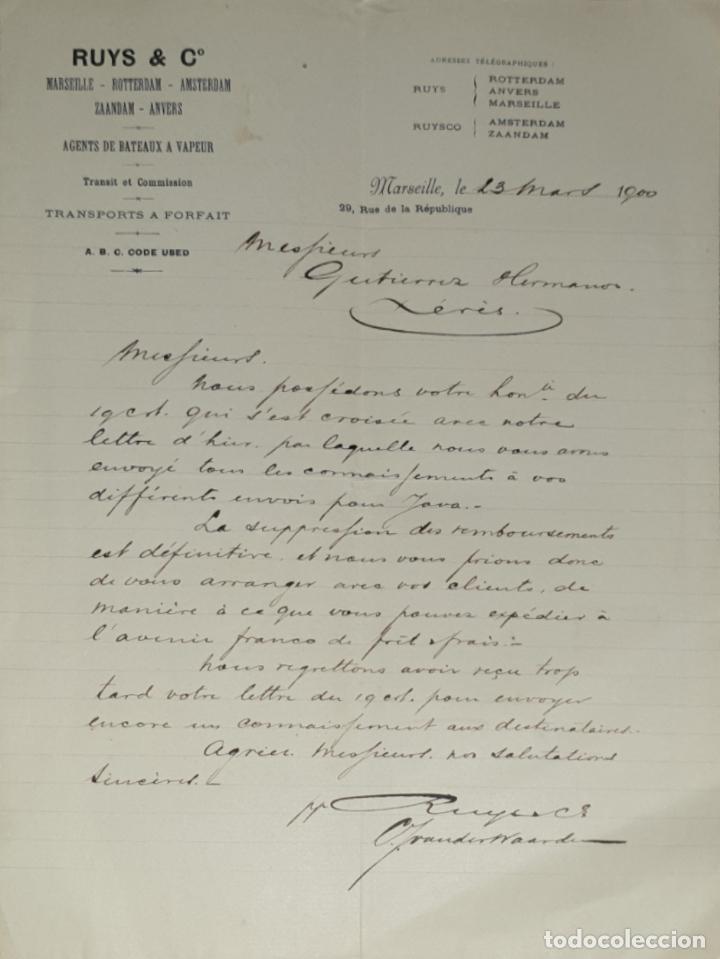 RUYS & Cº
MARSEILLE - ROTTERDAM - AMSTERDAM
ZAANDAM - ANVERS
AGENTS DE BATEAUX A VAPEUR
Transit et Commission
TRANSPORTS A FORFAIT
A. B. C. CODE USED
ADRESSES TÉLÉGRAPHIQUES :
RUYS
ROTTERDAM
ANVERS
MARSEILLE
RUYSCO
AMSTERDAM
ZAANDAM
Marseille, le 23 Mars 1900
29, Rue de la République
Messieurs
Gutierrez Hermanos.
Xérès.
Messieurs.
Nous possédons votre hon^le du
19 crt. qui s'est croisée avec notre
lettre d'hier. par laquelle nous vous avons
envoyé tous les connaissements à vos
différents envois pour Java.-
La suppression des remboursements
est définitive. et nous vous prions donc
de vous arranger avec vos clients, de
manière à ce que vous pouvez expédier à
l'avenir franco de frêt & frais.-
Nous regrettons avoir reçu trop
tard votre lettre du 19 crt. pour envoyer
encore un connaissement aux destinataires.
Agriez Messieurs. nos salutations
sincères.-
pp Ruys & Cº
C. J. van der Waarde
todocoleccion.net